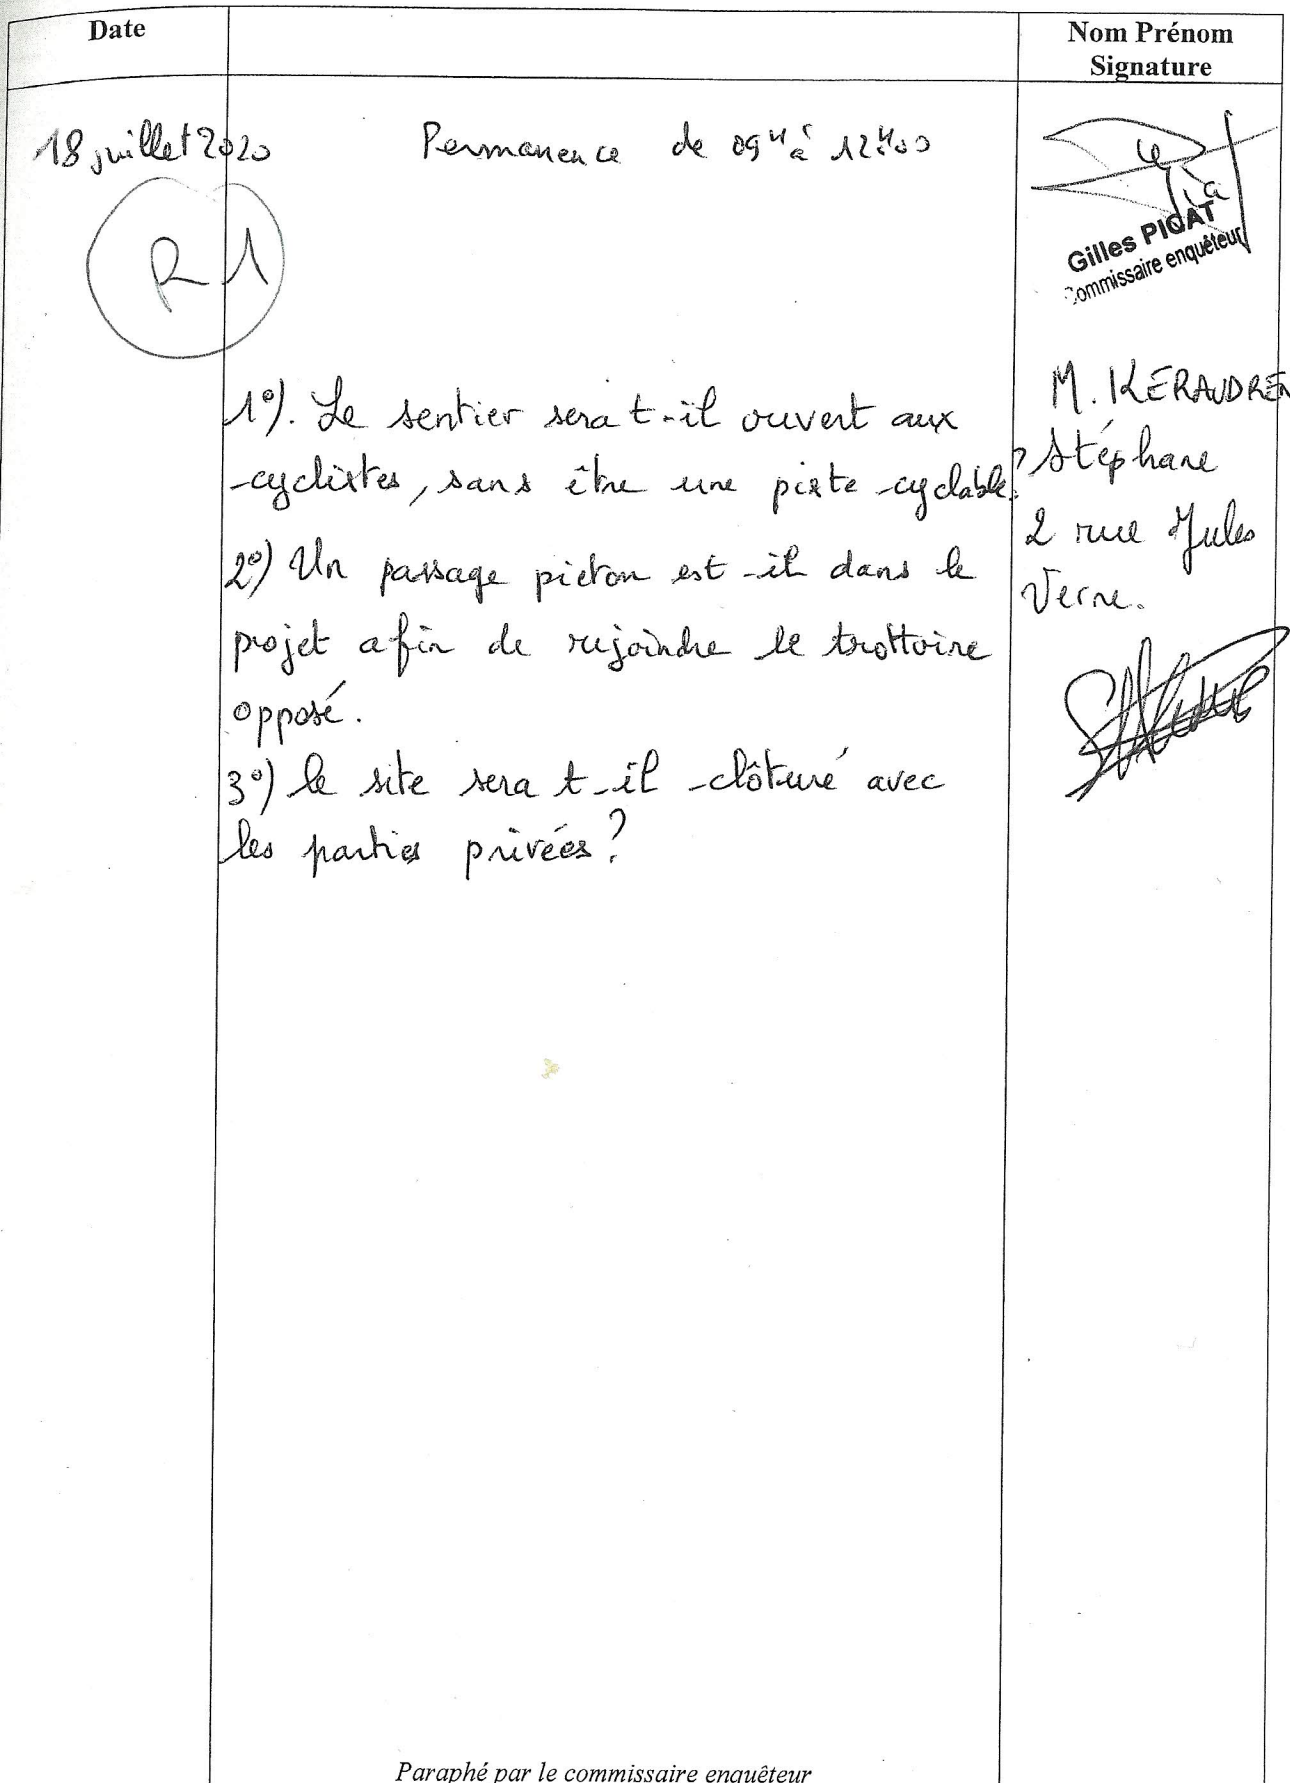 Date
Nom Prénom
Signature
18 juillet 2020
Permanence de 09H à 12H00
R1
Gilles PICAT
Commissaire enquêteur
1°). Le sentier sera t-il ouvert aux
cyclistes, sans être une piste cyclable?
2°) Un passage piéton est-il dans le
projet afin de rejoindre le trottoire
opposé.
3°) le site sera t-il clôturé avec
les parties privées?
M. KERAUDREN
Stéphane
2 rue Jules
Verne.
Paraphé par le commissaire enquêteur